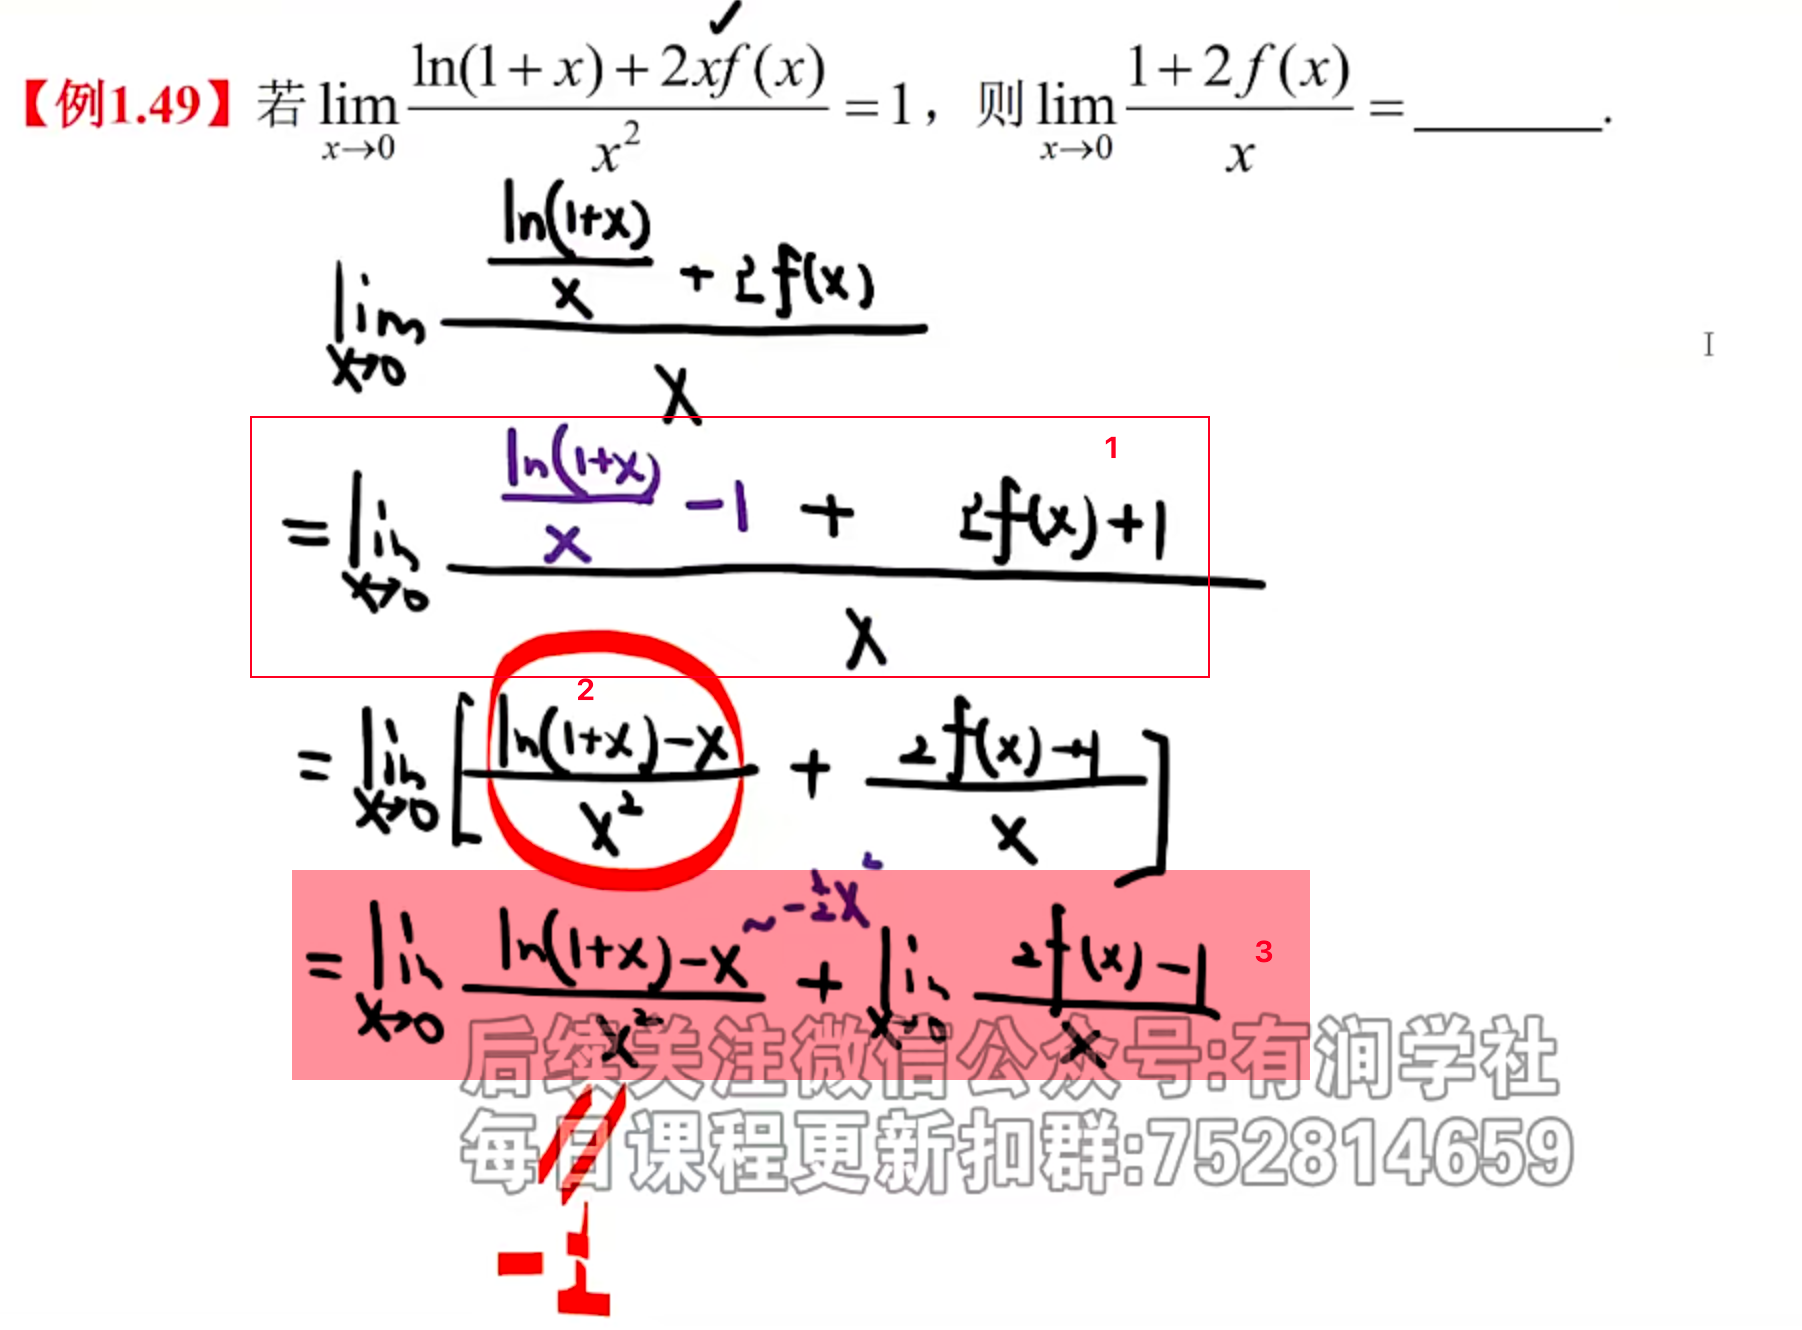 【例1.49】若 lim x→0 (ln(1+x)+2xf(x))/x² =1，则 lim x→0 (1+2f(x))/x = ______.
lim x→0 (ln(1+x)/x + 2f(x))/x
1
= lim x→0 (ln(1+x)/x -1 + 2f(x)+1)/x
2
= lim x→0 [ (ln(1+x)-x)/x² + (2f(x)+1)/x ]
~ -1/2 x²
= lim x→0 (ln(1+x)-x)/x² + lim x→0 (2f(x)-1)/x 3
后续关注微信公众号:有润学社
每日课程更新扣群:752814659